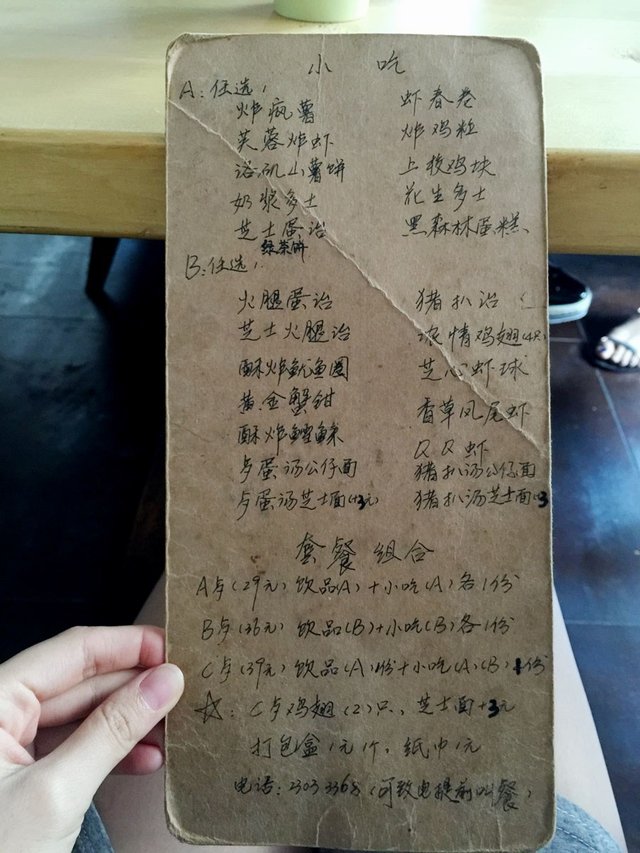 小吃
A:任选1
炸疯薯 虾春卷
芙蓉炸虾 炸鸡粒
洛矶山薯饼 上校鸡块
奶浆多士 花生多士
芝士蛋治 黑森林蛋糕
绿茶饼
B:任选1
火腿蛋治 猪扒治
芝士火腿治 浓情鸡翅(4只)
酥炸鱿鱼圈 芝心虾球
黄金蟹钳 香草凤尾虾
酥炸鳕鱼条 QQ虾
卤蛋汤公仔面 猪扒汤公仔面
卤蛋汤芝士面(+3元) 猪扒汤芝士面(+3
套餐组合
A卡(29元) 饮品(A)+小吃(A)各1份
B卡(36元) 饮品(B)+小吃(B)各1份
C卡(39元) 饮品(A)1份+小吃(A)(B)1份
☆:C卡鸡翅(2)只,芝士面+3元
打包盒1元1个,纸巾1元
电话:2303 3368(可致电提前叫餐)